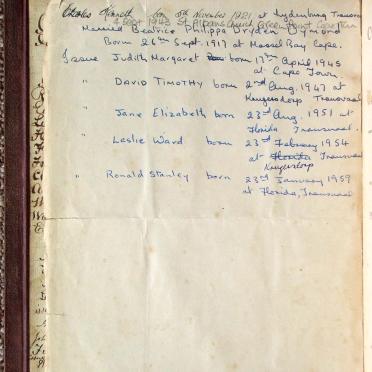 Charles Kenneth born 5th November 1921 at Lydenburg Transvaal
at Sept 1943 St Church Green Point Cape Town
Married Beatrice Philippa Dryden Dymond
Born 26th Sept. 1917 at Mossel Bay Cape.
Issue Judith Margaret born 17th April 1945
at Cape Town
" DAVID TIMOTHY born 2nd Aug. 1947 at
Krugersdorp Transvaal
" Jane Elizabeth born 23rd Aug. 1951 at
Florida Transvaal.
" Leslie Ward born 23rd February 1954
at Florida Transvaal
Krugersdorp
" Ronald Stanley born 23rd January 1959
at Florida, Transvaal